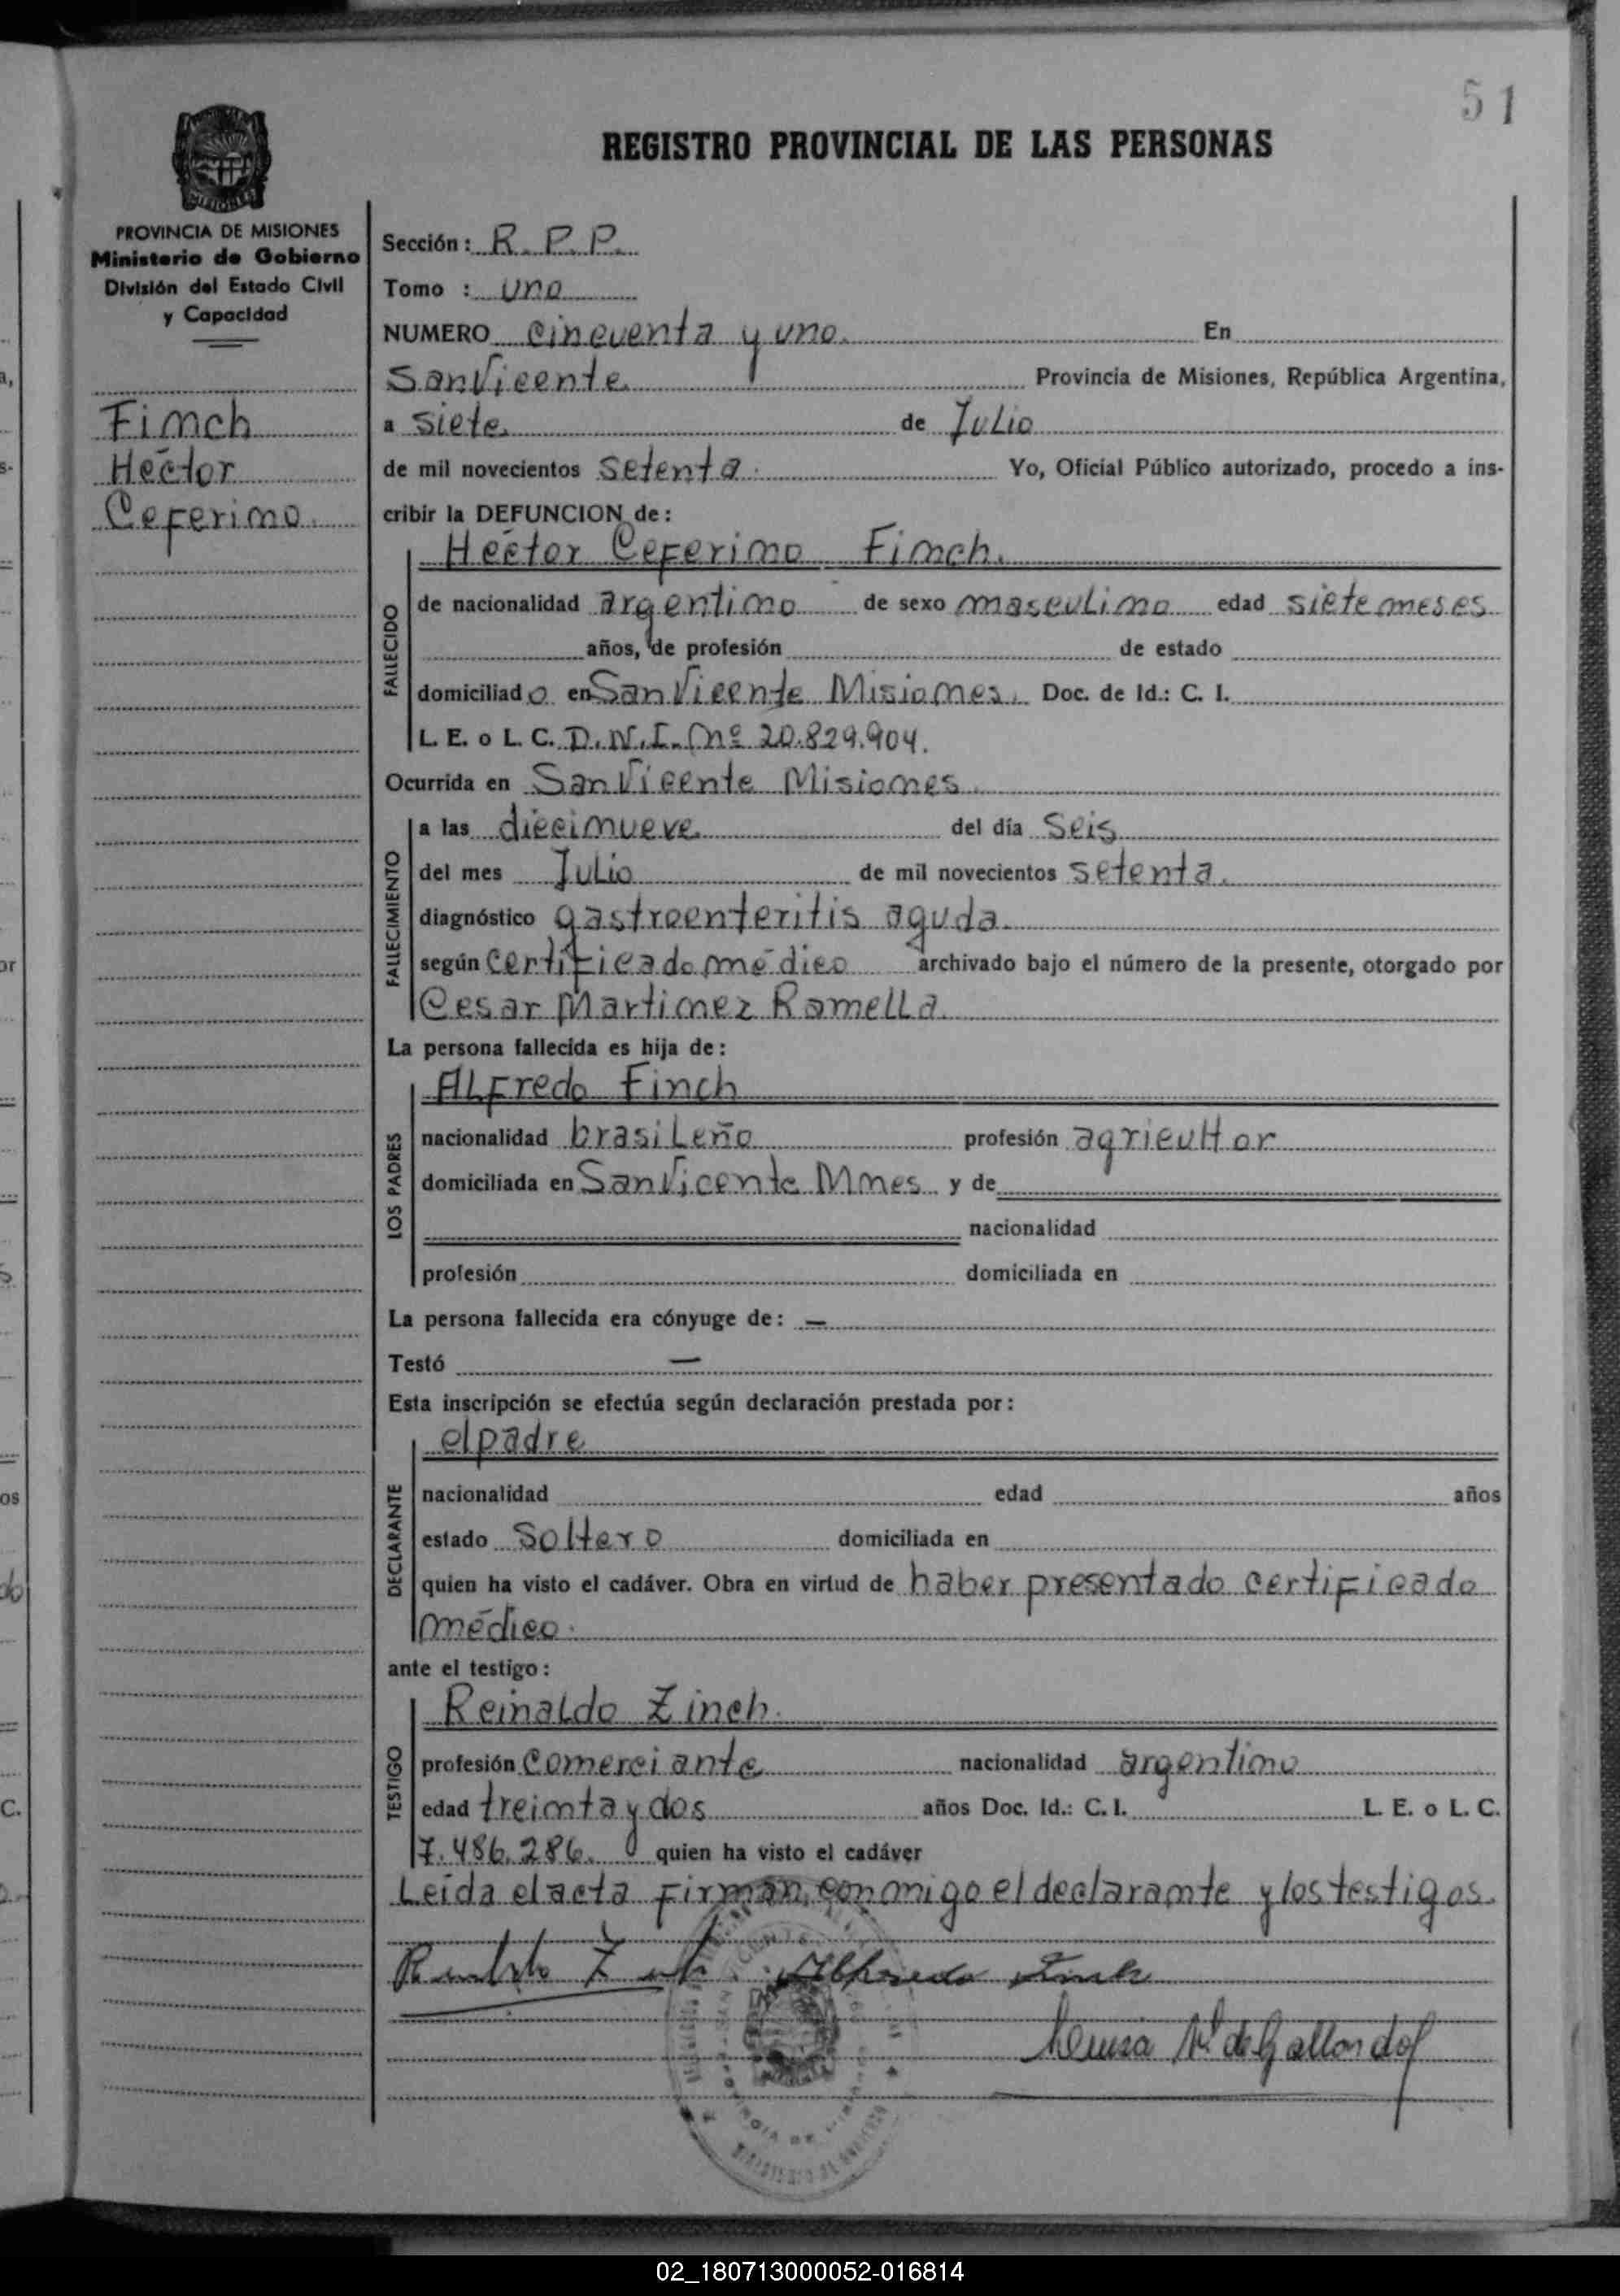 51
REGISTRO PROVINCIAL DE LAS PERSONAS
PROVINCIA DE MISIONES
Ministerio de Gobierno
División del Estado Civil
y Capacidad
Finch
Héctor
Ceferino.
Sección: R.P.P.
Tomo : uno
NUMERO cincuenta y uno. En
San Vicente Provincia de Misiones, República Argentina,
a siete. de Julio
de mil novecientos setenta. Yo, Oficial Público autorizado, procedo a ins-
cribir la DEFUNCION de:
Héctor Ceferino Finch.
FALLECIDO
de nacionalidad argentino de sexo masculino edad siete meses
años, de profesión de estado
domiciliado en San Vicente Misiones. Doc. de Id.: C. I.
L. E. o L. C. D.N.I. Nº 20.829.904.
Ocurrida en San Vicente Misiones.
FALLECIMIENTO
a las diecinueve del día seis
del mes Julio de mil novecientos setenta.
diagnóstico gastroenteritis aguda.
según certificado médico archivado bajo el número de la presente, otorgado por
Cesar Martinez Ramella.
La persona fallecida es hija de:
LOS PADRES
Alfredo Finch
nacionalidad brasileño profesión agricultor
domiciliada en San Vicente Mnes y de
nacionalidad
profesión domiciliada en
La persona fallecida era cónyuge de: —
Testó —
Esta inscripción se efectúa según declaración prestada por:
DECLARANTE
el padre
nacionalidad edad años
estado soltero domiciliada en
quien ha visto el cadáver. Obra en virtud de haber presentado certificado
médico.
ante el testigo:
TESTIGO
Reinaldo Zinch.
profesión comerciante nacionalidad argentino
edad treinta y dos años Doc. Id.: C. I. L. E. o L. C.
7.486.286. quien ha visto el cadáver
Leída el acta firman conmigo el declarante y los testigos.
Alfredo Finch
de Gallardo
02_180713000052-016814